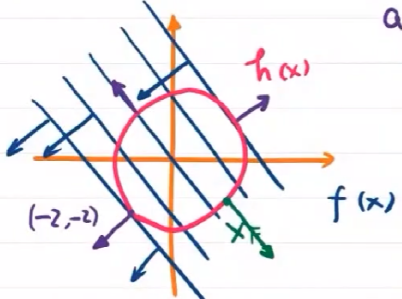 a
h(x)
f(x)
(-2,-2)
x_F